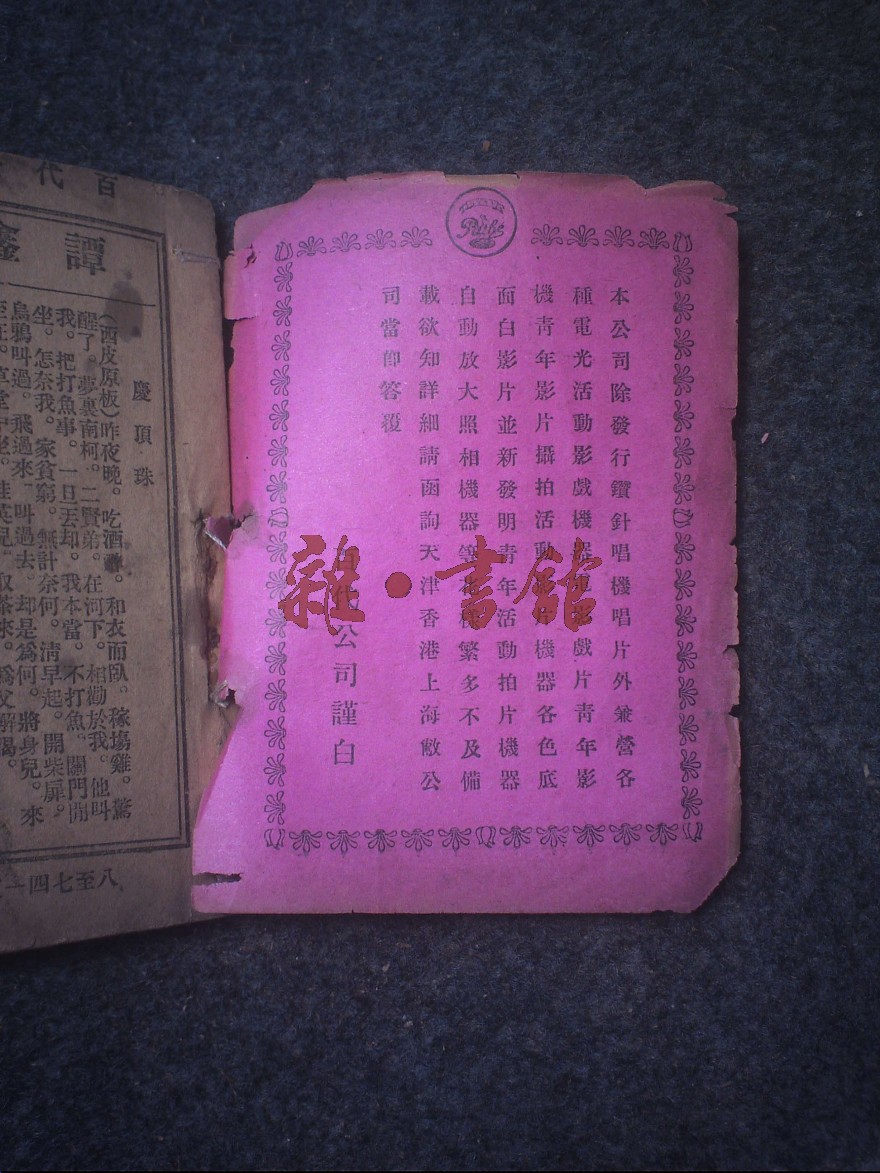 Pathé
本公司除發行鑽針唱機唱片外兼營各
種電光活動影戲機器電影戲片青年影
機青年影片攝拍活動影片機器各色底
面白影片並新發明青年活動拍片機器
自動放大照相機器等花樣繁多不及備
載欲知詳細請函詢天津香港上海敝公
司當卽答覆
百代公司謹白
雜·書館
百代
譚鑫
慶頂珠
(西皮原板)昨夜晚。吃酒醉。和衣而臥。稼塲雞。驚
醒了。夢裏南柯。二賢弟。在河下。相勸於我。他叫
我。把打魚事。一旦丟却。我本當。不打魚。關門閒
坐。怎奈我。家貧窮。無計奈何。淸早起。開柴扉。
烏鴉叫過。飛過來。叫過去。却是爲何。將身兒。來
八至七四一